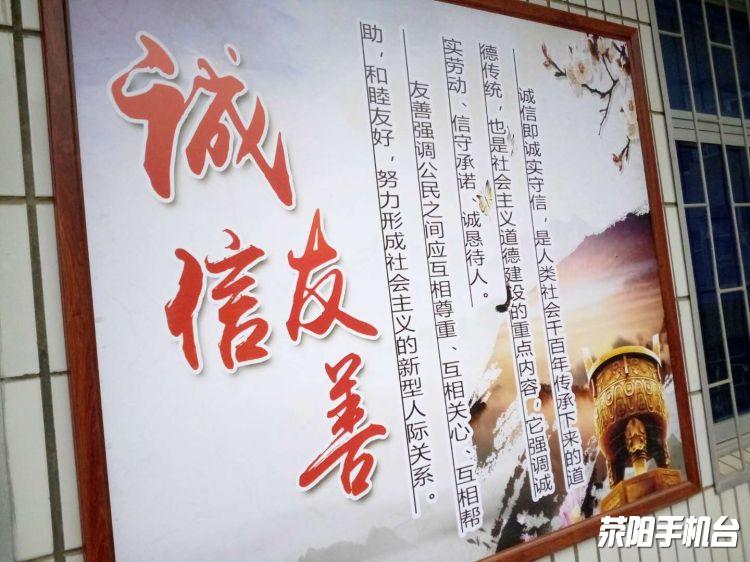 诚信
友善
诚信即诚实守信，是人类社会千百年传承下来的道
德传统，也是社会主义道德建设的重点内容，它强调诚
实劳动、信守承诺、诚恳待人。
友善强调公民之间应互相尊重、互相关心、互相帮
助，和睦友好，努力形成社会主义的新型人际关系。
荥阳手机台